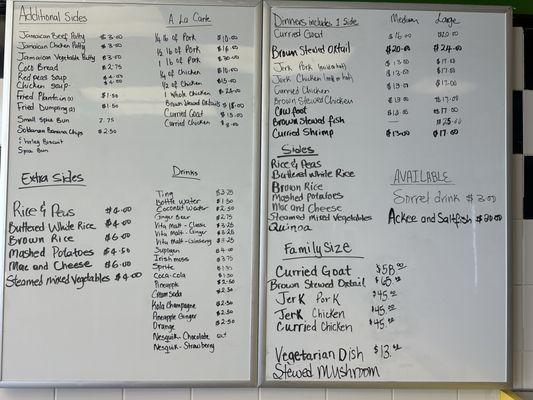 Additional Sides
Jamaican Beef Patty $3.00
Jamaican Chicken Patty $3.00
Jamaican Vegetable Patty $3.00
Coco Bread $2.75
Red peas Soup
Chicken Soup
Fried Plantain $1.50
Fried Dumpling $1.50
Small Spice Bun 2.75
Soldanza Banana Chips $2.50
Shirley Biscuit
Spice Bun
Extra Sides
Rice & Peas $4.00
Buttered White Rice $4.00
Brown Rice $6.00
Mashed Potatoes $4.50
Mac and Cheese $6.00
Steamed mixed Vegetables $4.00
A La Carte
1/4 lb of Pork $10.00
1/2 lb of Pork
1 lb of Pork
1/4 of Chicken
1/2 of Chicken
1 Whole Chicken
Brown Stewed Oxtails $18.00
Curried Goat
Curried Chicken
Drinks
Ting $3.25
Bottle water $1.50
Coconut Water $2.50
Ginger Beer $2.75
Vita Malt - Classic $3.25
Vita Malt - Ginger $3.25
Vita Malt - Ginseng $3.25
Supligen
Irish moss $3.75
Sprite
Coca-Cola
Pineapple $2.50
Cream Soda
Kola Champagne $2.50
Pineapple Ginger $2.50
Orange $2.50
Nesquik Chocolate
Nesquik - Strawberry
Dinners includes 1 Side Medium Large
Curried Goat $16.00 $20.00
Brown Stewed Oxtail $20.00 $24.00
Jerk Pork $13.00 $17.00
Jerk Chicken $13.00 $17.00
Curried Chicken $13.00 $17.00
Brown Stewed Chicken $13.00 $17.00
Cow foot $13.00 $17.00
Brown Stewed fish $25.00
Curried Shrimp $13.00 $17.00
Sides
Rice & Peas
Buttered White Rice
Brown Rice
Mashed Potatoes
Mac and Cheese
Steamed mixed Vegetables
Quinoa
AVAILABLE
Sorrel drink $3.00
Ackee and Saltfish $20.00
Family Size
Curried Goat $58.00
Brown Stewed Oxtail $65.00
Jerk Pork $45.00
Jerk Chicken $45.00
Curried Chicken $45.00
Vegetarian Dish $13.00
Stewed Mushroom